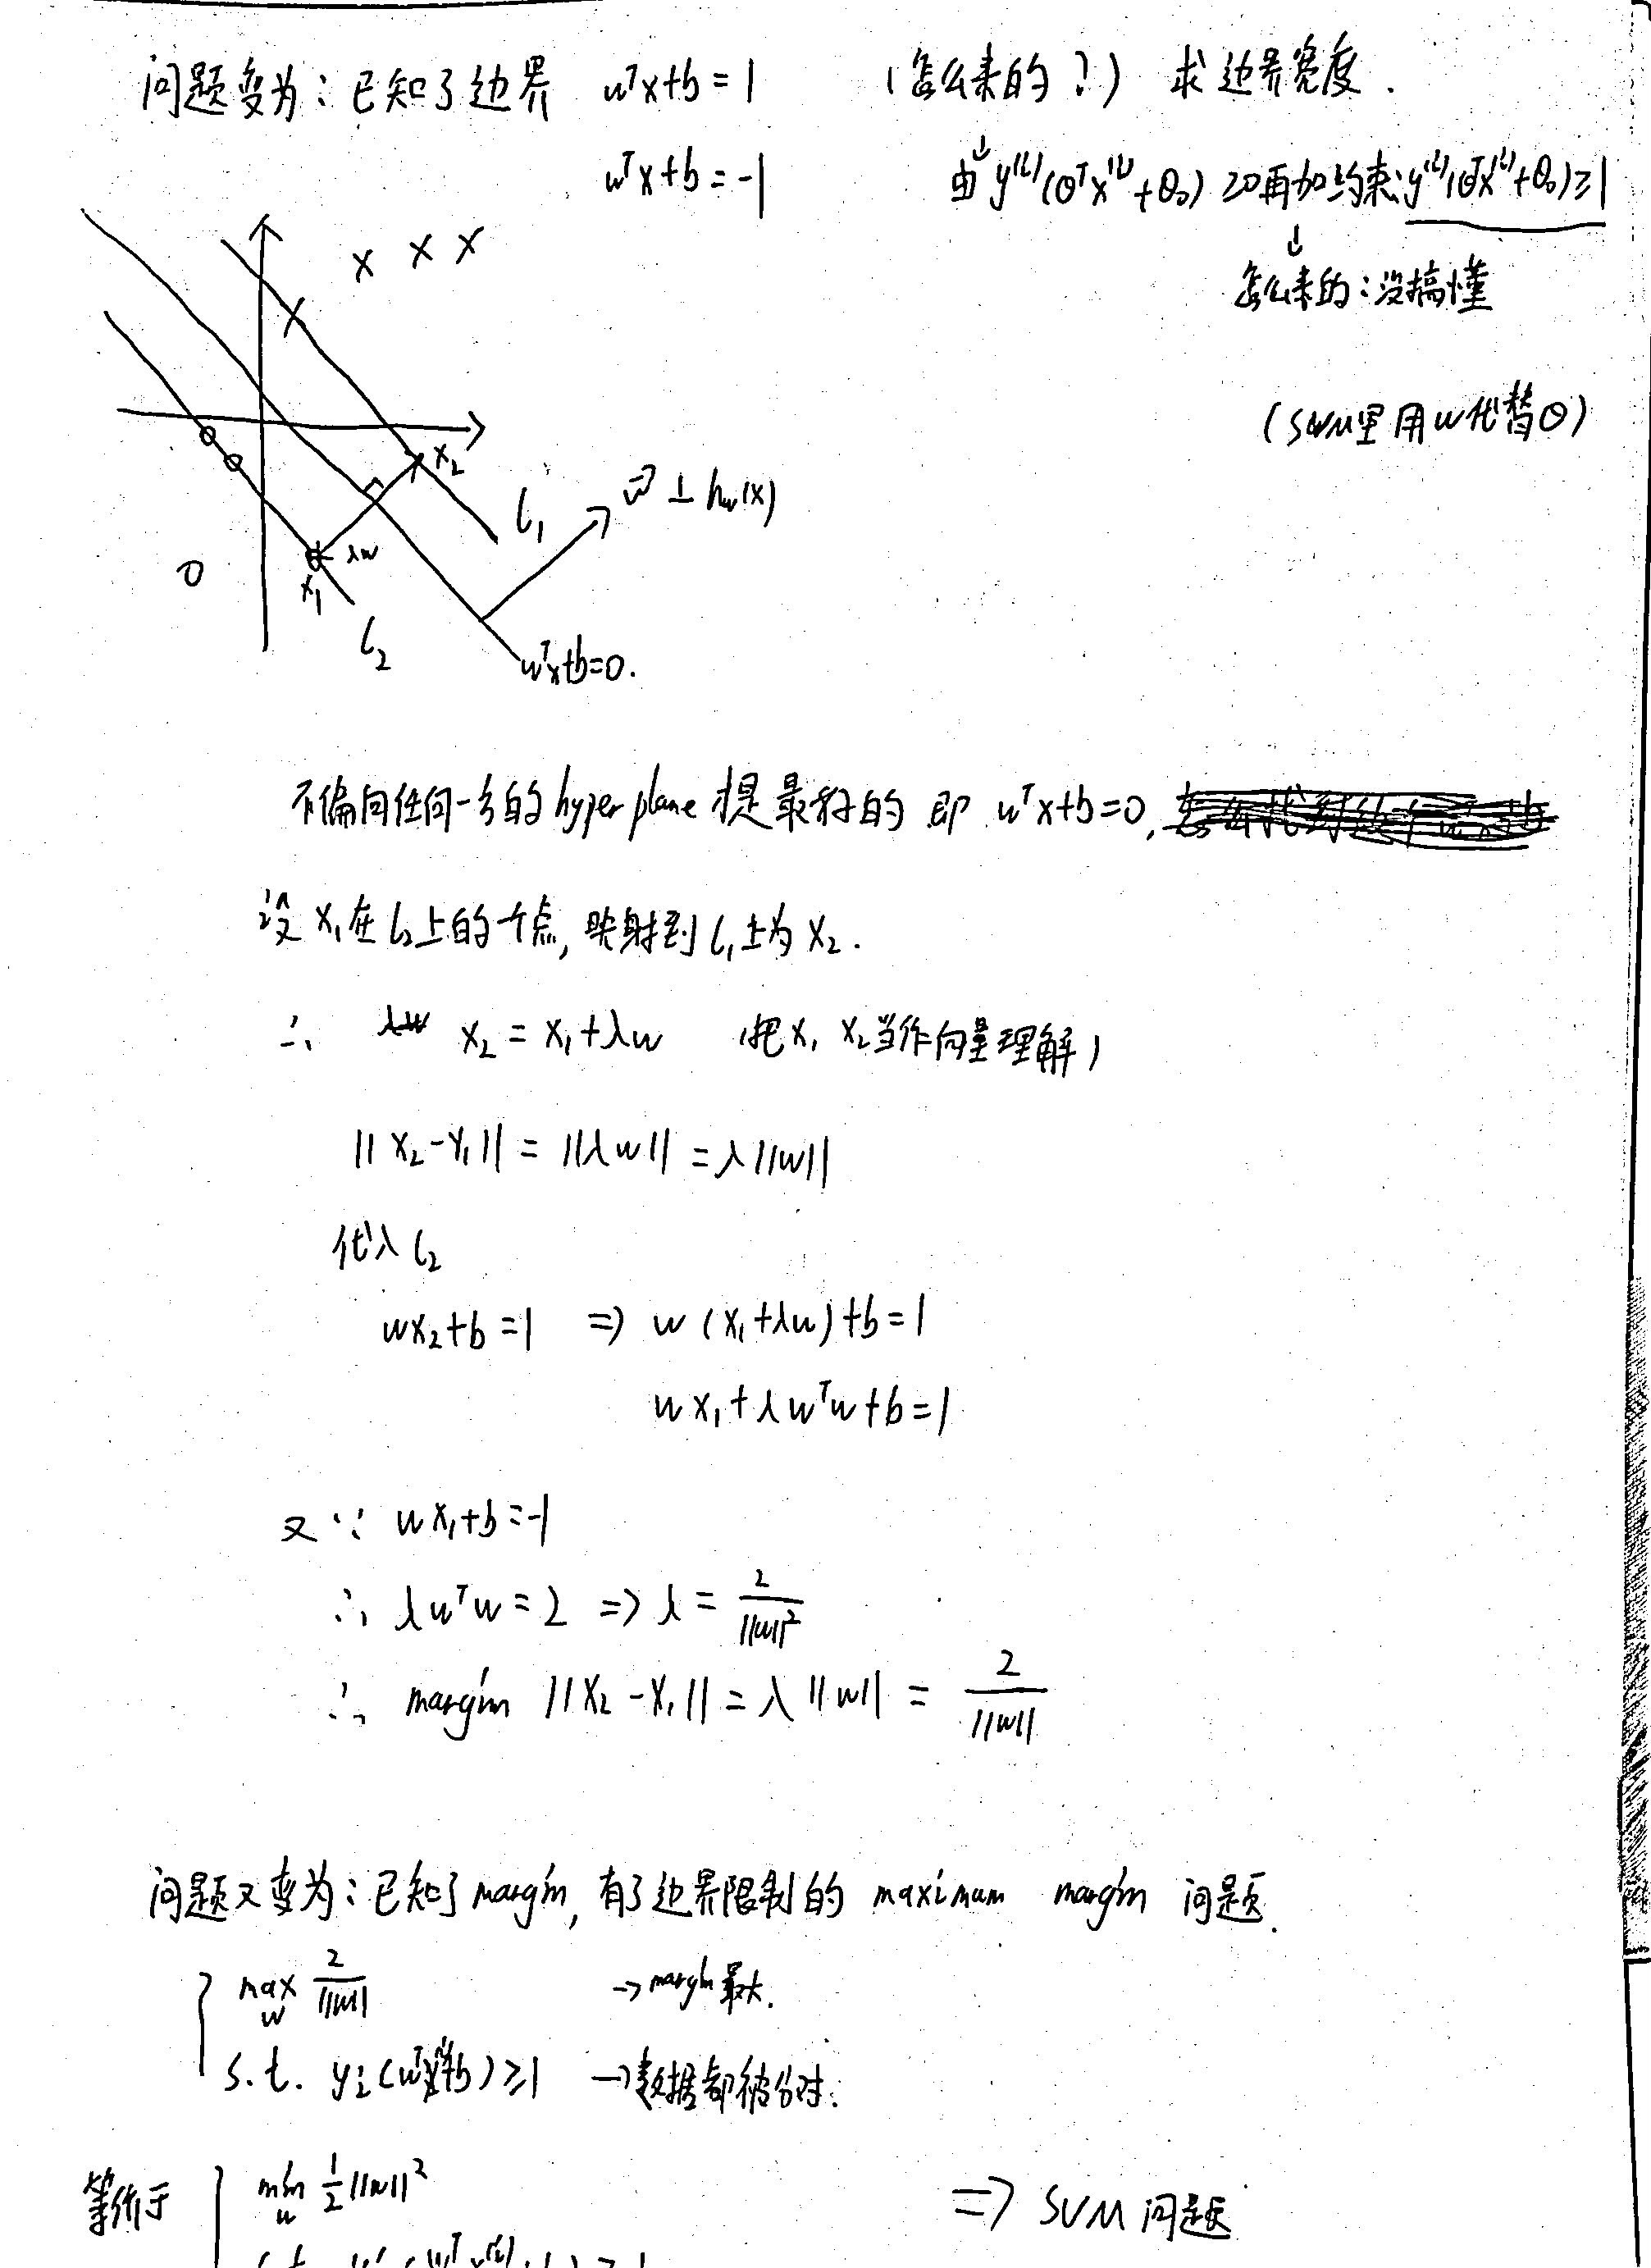 问题变为：已知了边界 wᵀx+b=1 （怎么来的？） 求边界宽度.
wᵀx+b=-1
由 y⁽ⁱ⁾(θᵀx⁽ⁱ⁾+θ₀) ≥0再加约束: y⁽ⁱ⁾(θᵀx⁽ⁱ⁾+θ₀)≥1
↓
怎么来的：没搞懂
(SVM里用w代替θ)
x x x
x
x₂
l₁
w⃗ ⊥ h_w(x)
λw
x₁
0
l₂
wᵀx+b=0.
不偏向任何一方的 hyper plane 才是最好的 即 wᵀx+b=0,
设 x₁在l₂上的一个点, 映射到l₁上为x₂.
∴ x₂ = x₁+λw (把x₁ x₂当作向量理解)
||x₂-x₁|| = ||λw|| = λ||w||
代入l₂
wx₂+b=1 => w(x₁+λw)+b=1
wx₁+λwᵀw+b=1
又∵ wx₁+b=-1
∴ λwᵀw=2 => λ = 2/||w||²
∴ margin ||x₂-x₁|| = λ||w|| = 2/||w||
问题又变为：已知了margin, 有了边界限制的 maximum margin 问题.
max_w 2/||w|| → margin最大.
s.t. yᵢ(wᵀx⁽ⁱ⁾+b)≥1 → 数据都被分对.
等价于 min_w 1/2||w||² => SVM 问题